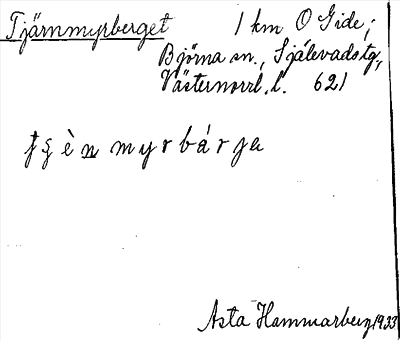 Tjärnmyrberget 1 km O Gide;
Björna sn., Själevads tg,
Västernorrl. l. 621
tʂènmyrbárja
Asta Hammarberg 1933